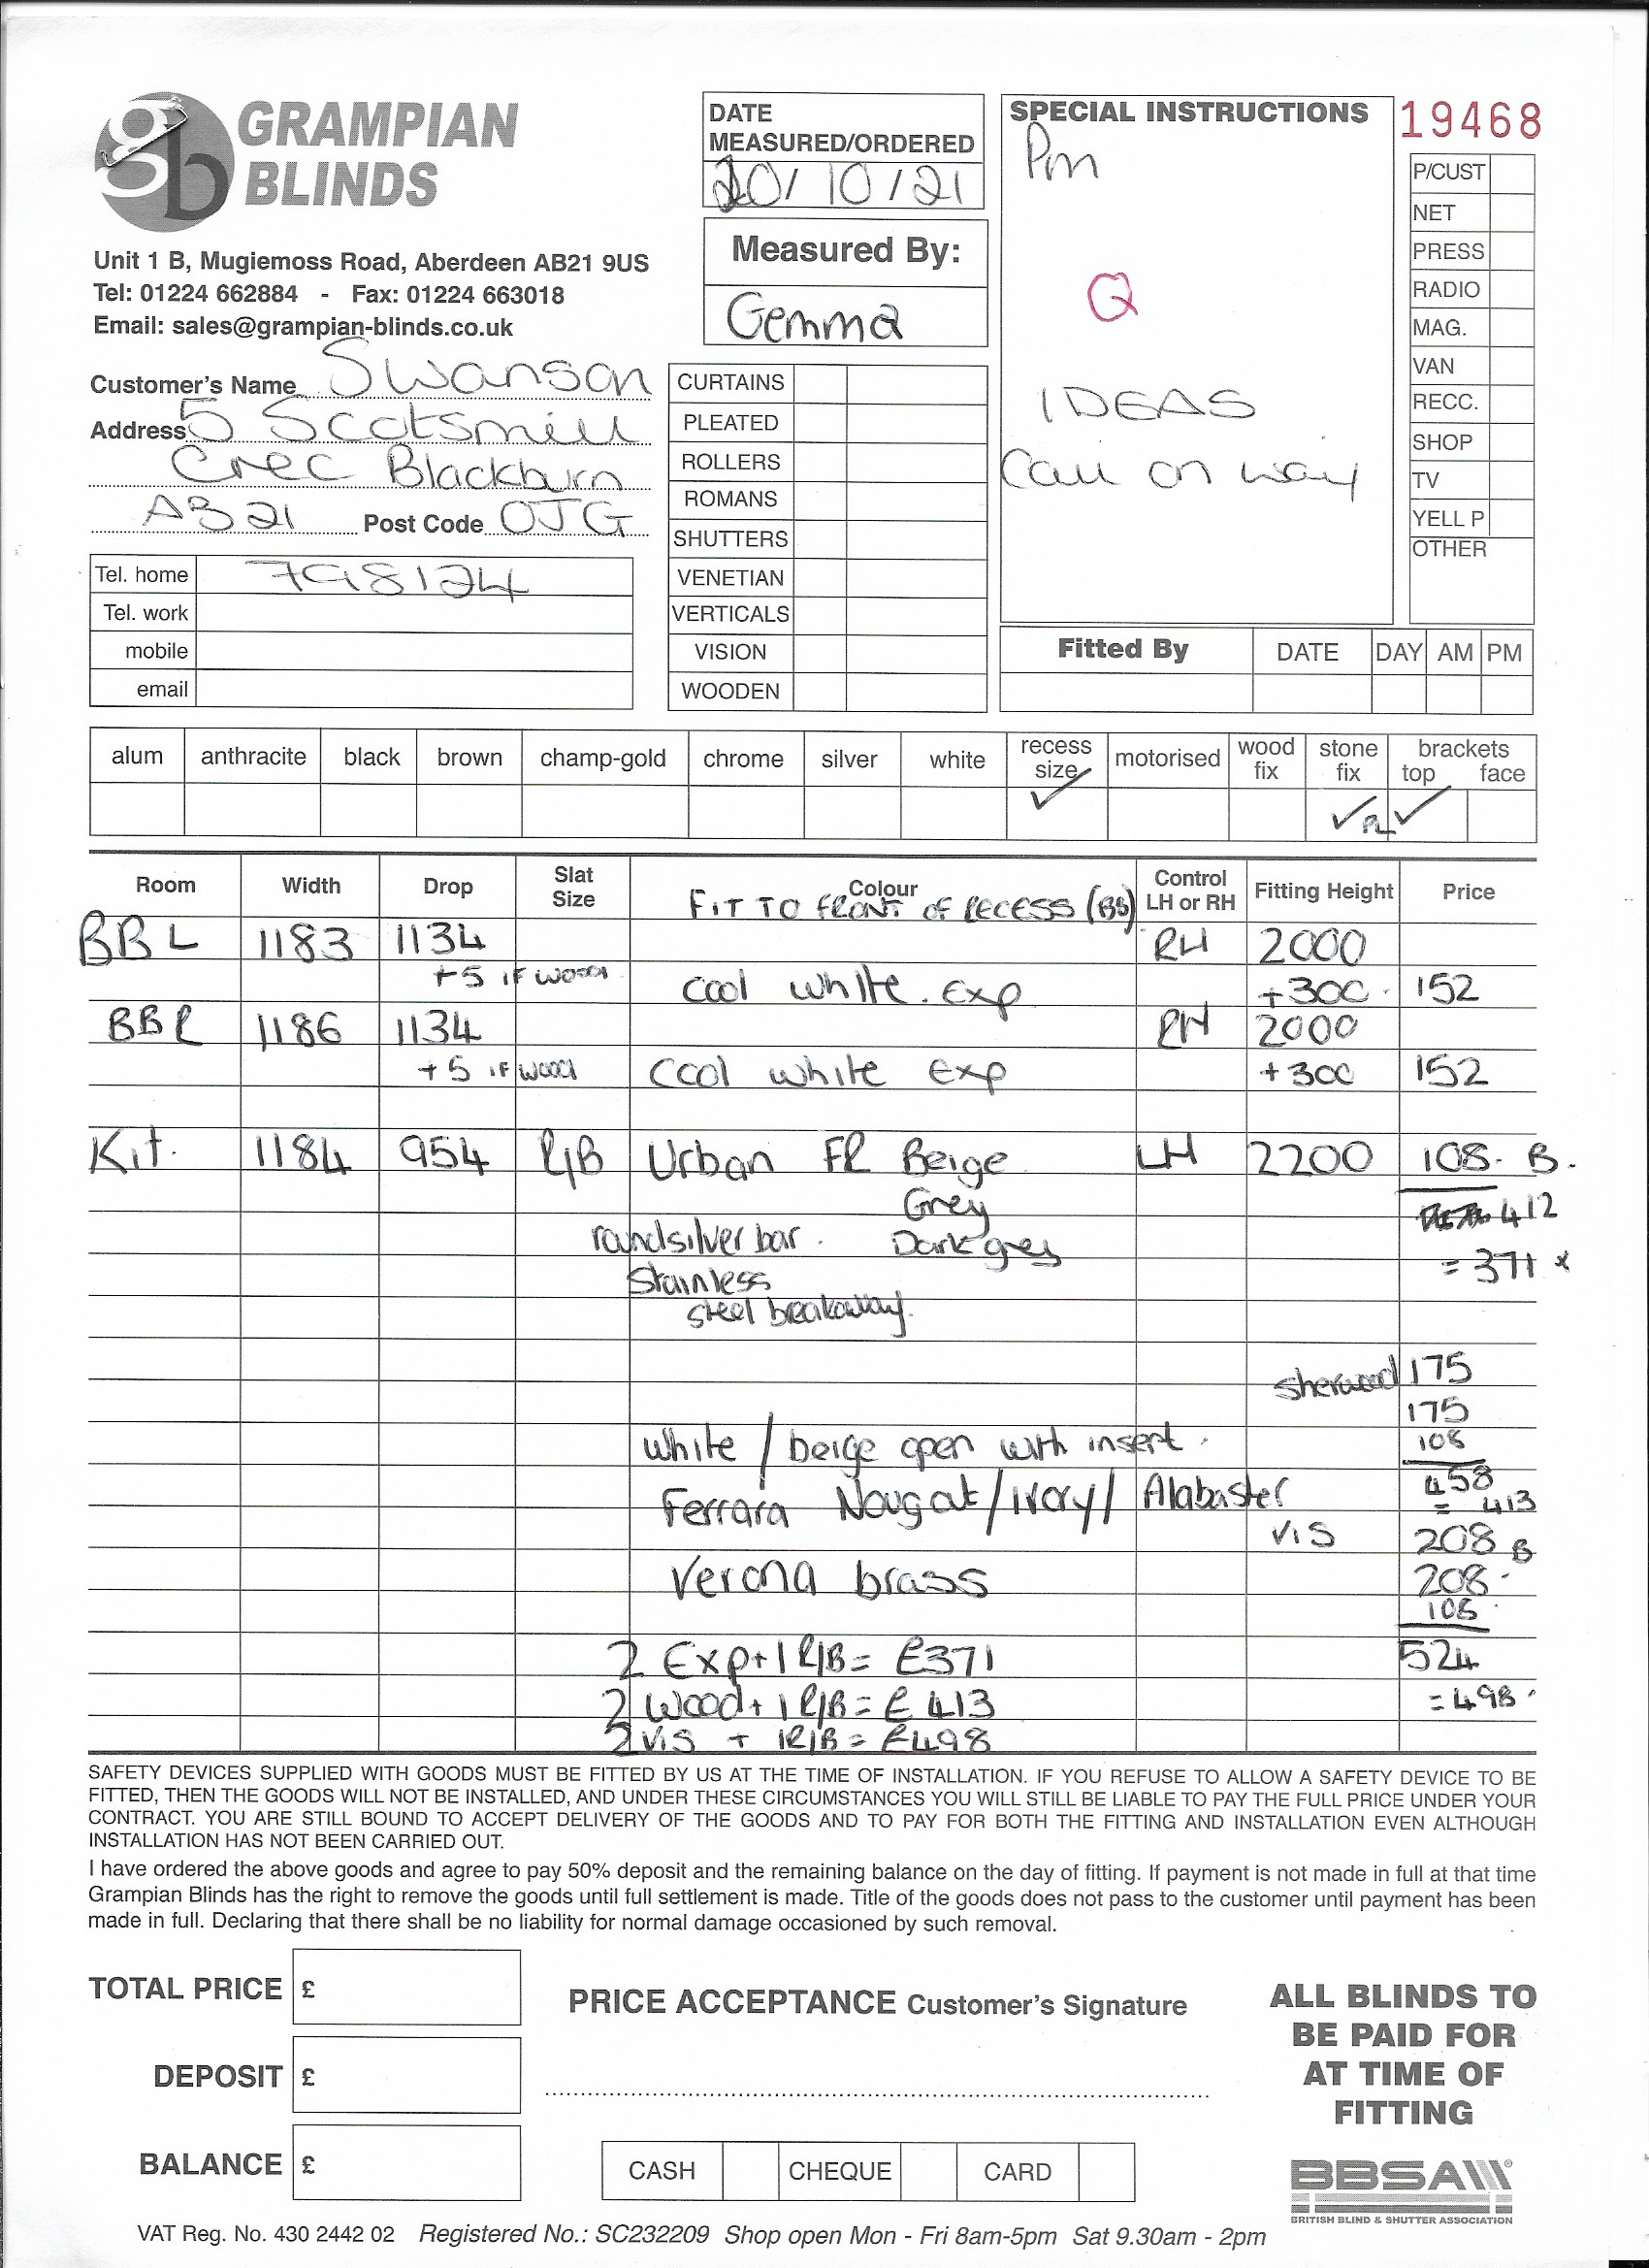 gb GRAMPIAN
BLINDS
Unit 1 B, Mugiemoss Road, Aberdeen AB21 9US
Tel: 01224 662884 - Fax: 01224 663018
Email: sales@grampian-blinds.co.uk
Customer's Name Swanson
Address 5 Scotsmill
Cres Blackburn
AB21 Post Code 0JG
Tel. home 798124
Tel. work
mobile
email
DATE
MEASURED/ORDERED
20/10/21
Measured By:
Gemma
CURTAINS
PLEATED
ROLLERS
ROMANS
SHUTTERS
VENETIAN
VERTICALS
VISION
WOODEN
SPECIAL INSTRUCTIONS
Pm
Q
IDEAS
Call on way
19468
P/CUST
NET
PRESS
RADIO
MAG.
VAN
RECC.
SHOP
TV
YELL P
OTHER
Fitted By DATE DAY AM PM
alum anthracite black brown champ-gold chrome silver white recess size motorised wood fix stone fix brackets top face
✓ ✓ ✓
Room Width Drop Slat Size Colour Control LH or RH Fitting Height Price
FIT TO FRONT OF RECESS (BB)
BBL 1183 1134 RH 2000
+5 IF WOOD cool white. exp +300. 152
BBR 1186 1134 RH 2000
+5 IF WOOD cool white exp +300 152
Kit. 1184 954 R/B Urban FR Beige LH 2200 108. B.
Grey 412
round silver bar. Dark grey = 371 x
Stainless
steel breakaway.
sherwood 175
175
white / beige open with insert. 108
Ferrara Nougat/ivory/ Alabaster 458
= 413
VIS 208 B
Verona brass 208.
108.
2 Exp+1 R/B= £371 524
2 Wood+ 1 R/B= £413 = 498.
2 VIS + 1R/B= £498
SAFETY DEVICES SUPPLIED WITH GOODS MUST BE FITTED BY US AT THE TIME OF INSTALLATION. IF YOU REFUSE TO ALLOW A SAFETY DEVICE TO BE
FITTED, THEN THE GOODS WILL NOT BE INSTALLED, AND UNDER THESE CIRCUMSTANCES YOU WILL STILL BE LIABLE TO PAY THE FULL PRICE UNDER YOUR
CONTRACT. YOU ARE STILL BOUND TO ACCEPT DELIVERY OF THE GOODS AND TO PAY FOR BOTH THE FITTING AND INSTALLATION EVEN ALTHOUGH
INSTALLATION HAS NOT BEEN CARRIED OUT.
I have ordered the above goods and agree to pay 50% deposit and the remaining balance on the day of fitting. If payment is not made in full at that time
Grampian Blinds has the right to remove the goods until full settlement is made. Title of the goods does not pass to the customer until payment has been
made in full. Declaring that there shall be no liability for normal damage occasioned by such removal.
TOTAL PRICE £
DEPOSIT £
BALANCE £
PRICE ACCEPTANCE Customer's Signature
CASH CHEQUE CARD
ALL BLINDS TO
BE PAID FOR
AT TIME OF
FITTING
BBSA
BRITISH BLIND & SHUTTER ASSOCIATION
VAT Reg. No. 430 2442 02 Registered No.: SC232209 Shop open Mon - Fri 8am-5pm Sat 9.30am - 2pm